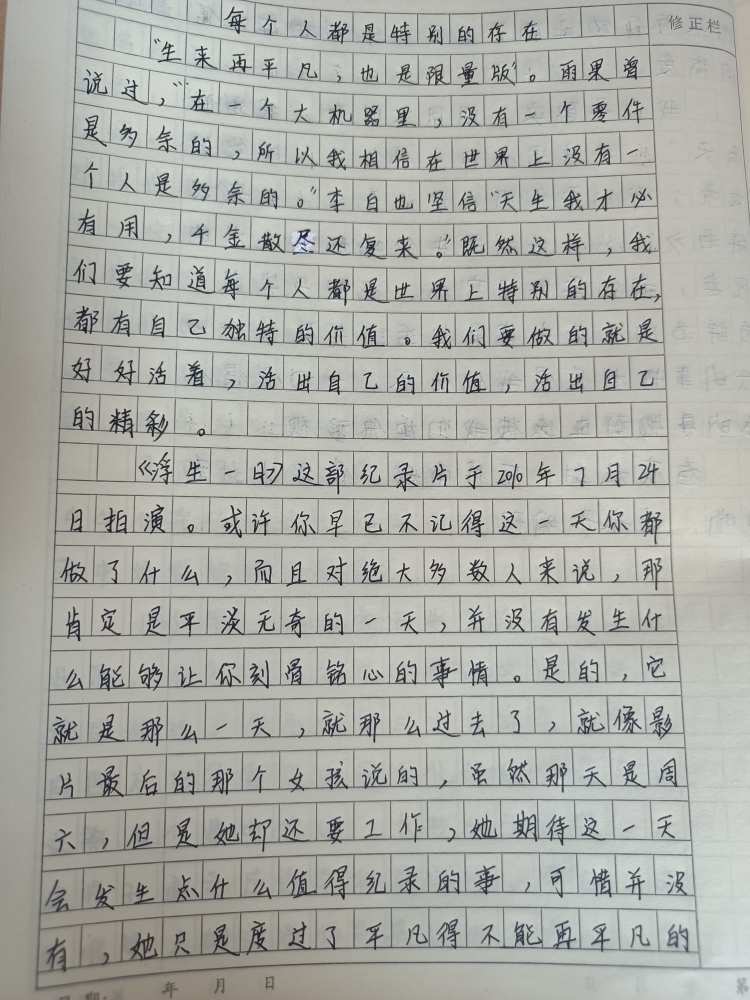 每个人都是特别的存在
修正栏
“生来再平凡，也是限量版”。雨果曾
说过，“在一个大机器里，没有一个零件
是多余的，所以我相信在世界上没有一
个人是多余的。”李白也坚信“天生我才必
有用，千金散尽还复来。”既然这样，我
们要知道每个人都是世界上特别的存在，
都有自己独特的价值。我们要做的就是
好好活着，活出自己的价值，活出自己
的精彩。
《浮生一日》这部纪录片于2010年7月24
日拍演。或许你早已不记得这一天你都
做了什么，而且对绝大多数人来说，那
肯定是平淡无奇的一天，并没有发生什
么能够让你刻骨铭心的事情。是的，它
就是那么一天，就那么过去了，就像影
片最后的那个女孩说的，虽然那天是周
六，但是她却还要工作，她期待这一天
会发生点什么值得纪录的事，可惜并没
有，她只是度过了平凡得不能再平凡的
日期: 年 月 日 第